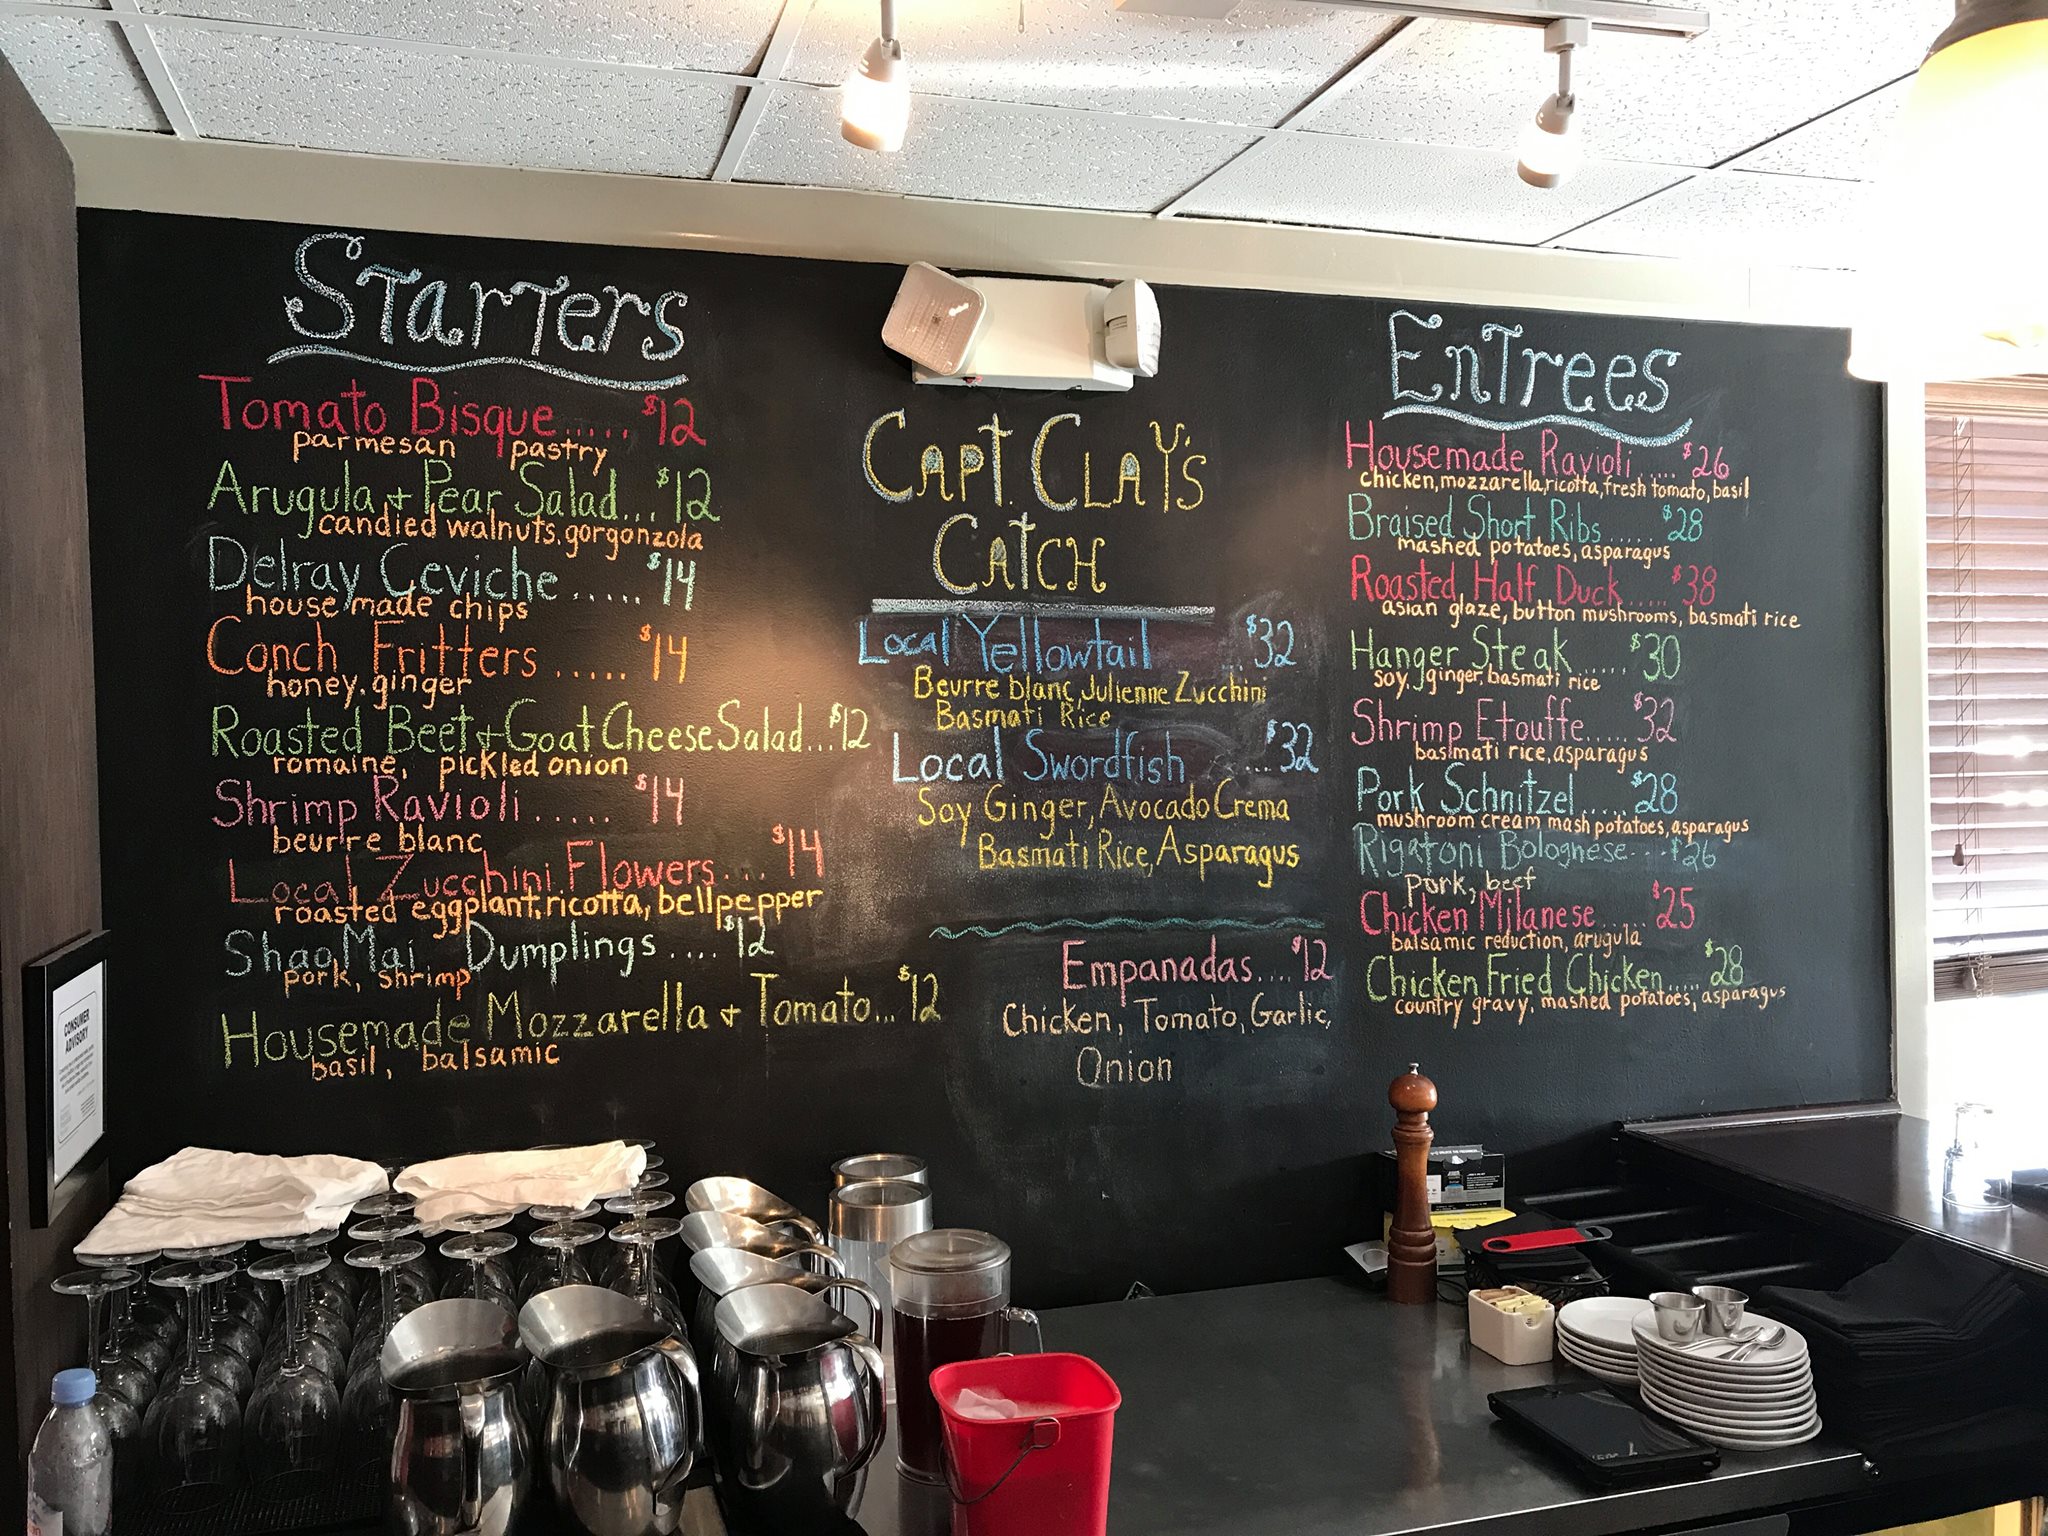 Starters
Tomato Bisque..... $12
parmesan pastry
Arugula + Pear Salad... $12
candied walnuts, gorgonzola
Delray Ceviche ..... $14
house made chips
Conch Fritters ..... $14
honey, ginger
Roasted Beet + Goat Cheese Salad... $12
romaine, pickled onion
Shrimp Ravioli ..... $14
beurre blanc
Local Zucchini Flowers... $14
roasted eggplant, ricotta, bell pepper
Shao Mai Dumplings .... $12
pork, shrimp
Housemade Mozzarella + Tomato... $12
basil, balsamic
Capt. Clay's
Catch
Local Yellowtail ... $32
Beurre blanc, Julienne Zucchini
Basmati Rice
Local Swordfish ... $32
Soy Ginger, Avocado Crema
Basmati Rice, Asparagus
Empanadas.... $12
Chicken, Tomato, Garlic,
Onion
Entrees
Housemade Ravioli..... $26
chicken, mozzarella, ricotta, fresh tomato, basil
Braised Short Ribs ..... $28
mashed potatoes, asparagus
Roasted Half Duck..... $38
asian glaze, button mushrooms, basmati rice
Hanger Steak..... $30
soy, ginger, basmati rice
Shrimp Etouffe..... $32
basmati rice, asparagus
Pork Schnitzel..... $28
mushroom cream mash potatoes, asparagus
Rigatoni Bolognese... $26
pork, beef
Chicken Milanese..... $25
balsamic reduction, arugula
Chicken Fried Chicken..... $28
country gravy, mashed potatoes, asparagus
CONSUMER
ADVISORY